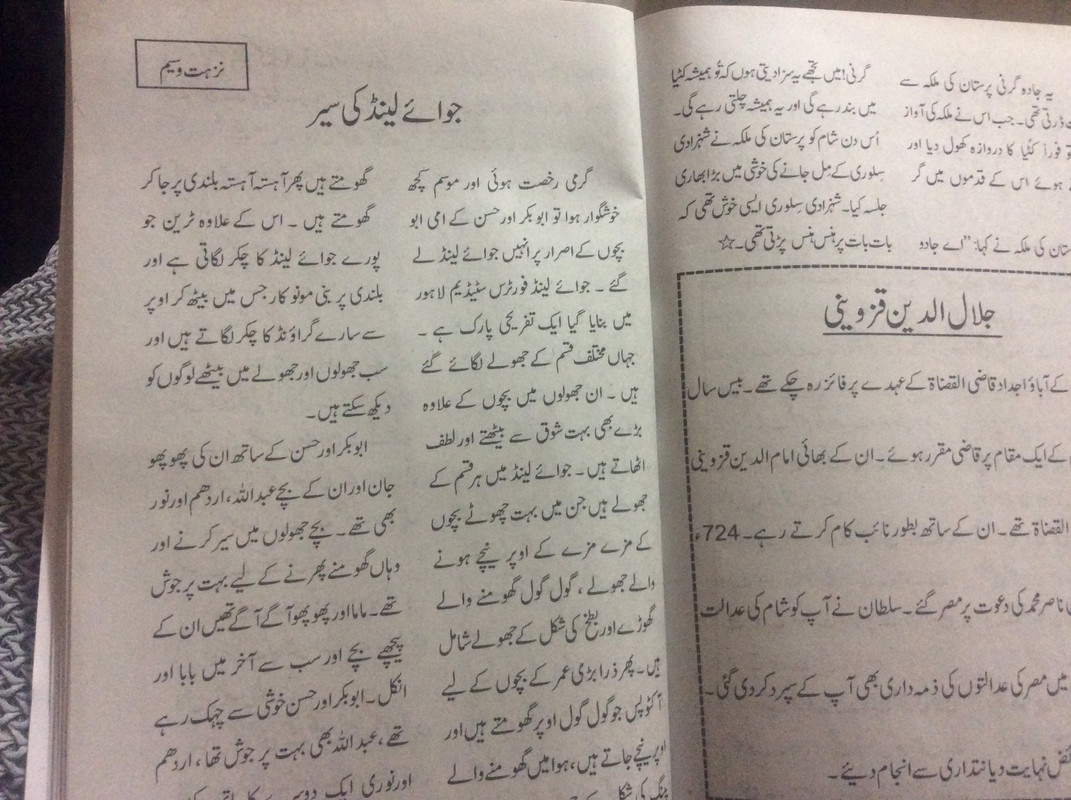 نزہت وسیم
جوائے لینڈ کی سیر
گرمی رخصت ہوئی اور موسم کچھ
خوشگوار ہوا تو ابوبکر اور حسن کے امی ابو
بچوں کے اصرار پر انہیں جوائے لینڈ لے
گئے ۔ جوائے لینڈ فورٹرس سٹیڈیم لاہور
میں بنایا گیا ایک تفریحی پارک ہے ۔
جہاں مختلف قسم کے جھولے لگائے گئے
ہیں ۔ ان جھولوں میں بچوں کے علاوہ
بڑے بھی بہت شوق سے بیٹھتے اور لطف
اٹھاتے ہیں۔ جوائے لینڈ میں ہر قسم کے
جھولے ہیں جن میں بہت چھوٹے بچوں
کے مزے مزے کے اوپر نیچے ہونے
والے جھولے ، گول گول گھومنے والے
گھوڑے اور بطخ کی شکل کے جھولے شامل
ہیں۔ پھر ذرا بڑی عمر کے بچوں کے لیے
آکٹوپس جو گول گول اوپر گھومتے ہیں اور
اوپر نیچے جاتے ہیں، ہوا میں گھومنے والے
کی شکل کے
گھومتے ہیں پھر آہستہ آہستہ بلندی پر جا کر
گھومتے ہیں ۔ اس کے علاوہ ٹرین جو
پورے جوائے لینڈ کا چکر لگاتی ہے اور
بلندی پر بنی مونو کار جس میں بیٹھ کر اوپر
سے سارے گراؤنڈ کا چکر لگاتے ہیں اور
سب جھولوں اور جھولے میں بیٹھے لوگوں کو
دیکھ سکتے ہیں۔
ابوبکر اور حسن کے ساتھ ان کی پھوپھو
جان اور ان کے بچے عبداللہ، اردھم اور نور
بھی تھے۔ بچے جھولوں میں سیر کرنے اور
وہاں گھومنے پھرنے کے لیے بہت پر جوش
تھے۔ ماما اور پھوپھو آگے آگے تھیں ان کے
پیچھے بچے اور سب سے آخر میں بابا اور
انکل۔ ابوبکر اور حسن خوشی سے چہک رہے
تھے، عبداللہ بھی بہت پر جوش تھا ، اردھم
اور نوری ایک دوسرے کا ہاتھ
یہ جادو گرنی پرستان کی ملکہ سے
ڈرتی تھی۔ جب اس نے ملکہ کی آواز
فوراً کٹیا کا دروازہ کھول دیا اور
ہوئے اس کے قدموں میں گر
کی ملکہ نے کہا: ”اے جادو
گرنی! میں تجھے یہ سزا دیتی ہوں کہ تُو ہمیشہ کٹیا
میں بند رہے گی اور یہ ہمیشہ چلتی رہے گی۔
اُس دن شام کو پرستان کی ملکہ نے شہزادی
سِلوری کے مِل جانے کی خوشی میں بڑا بھاری
جلسہ کیا۔ شہزادی سِلوری ایسی خوش تھی کہ
بات بات پر ہنس ہنس پڑتی تھی۔☆
جلال الدین قزوینی
کے آباؤ اجداد قاضی القضاۃ کے عہدے پر فائز رہ چکے تھے۔ بیس سال
کے ایک مقام پر قاضی مقرر ہوئے۔ ان کے بھائی امام الدین قزوینی
القضاۃ تھے۔ ان کے ساتھ بطور نائب کام کرتے رہے۔ 724ء
ناصر محمد کی دعوت پر مصر گئے۔ سلطان نے آپ کو شام کی عدالت
میں مصر کی عدالتوں کی ذمہ داری بھی آپ کے سپرد کر دی گئی۔
نہایت دیانتداری سے انجام دیئے۔